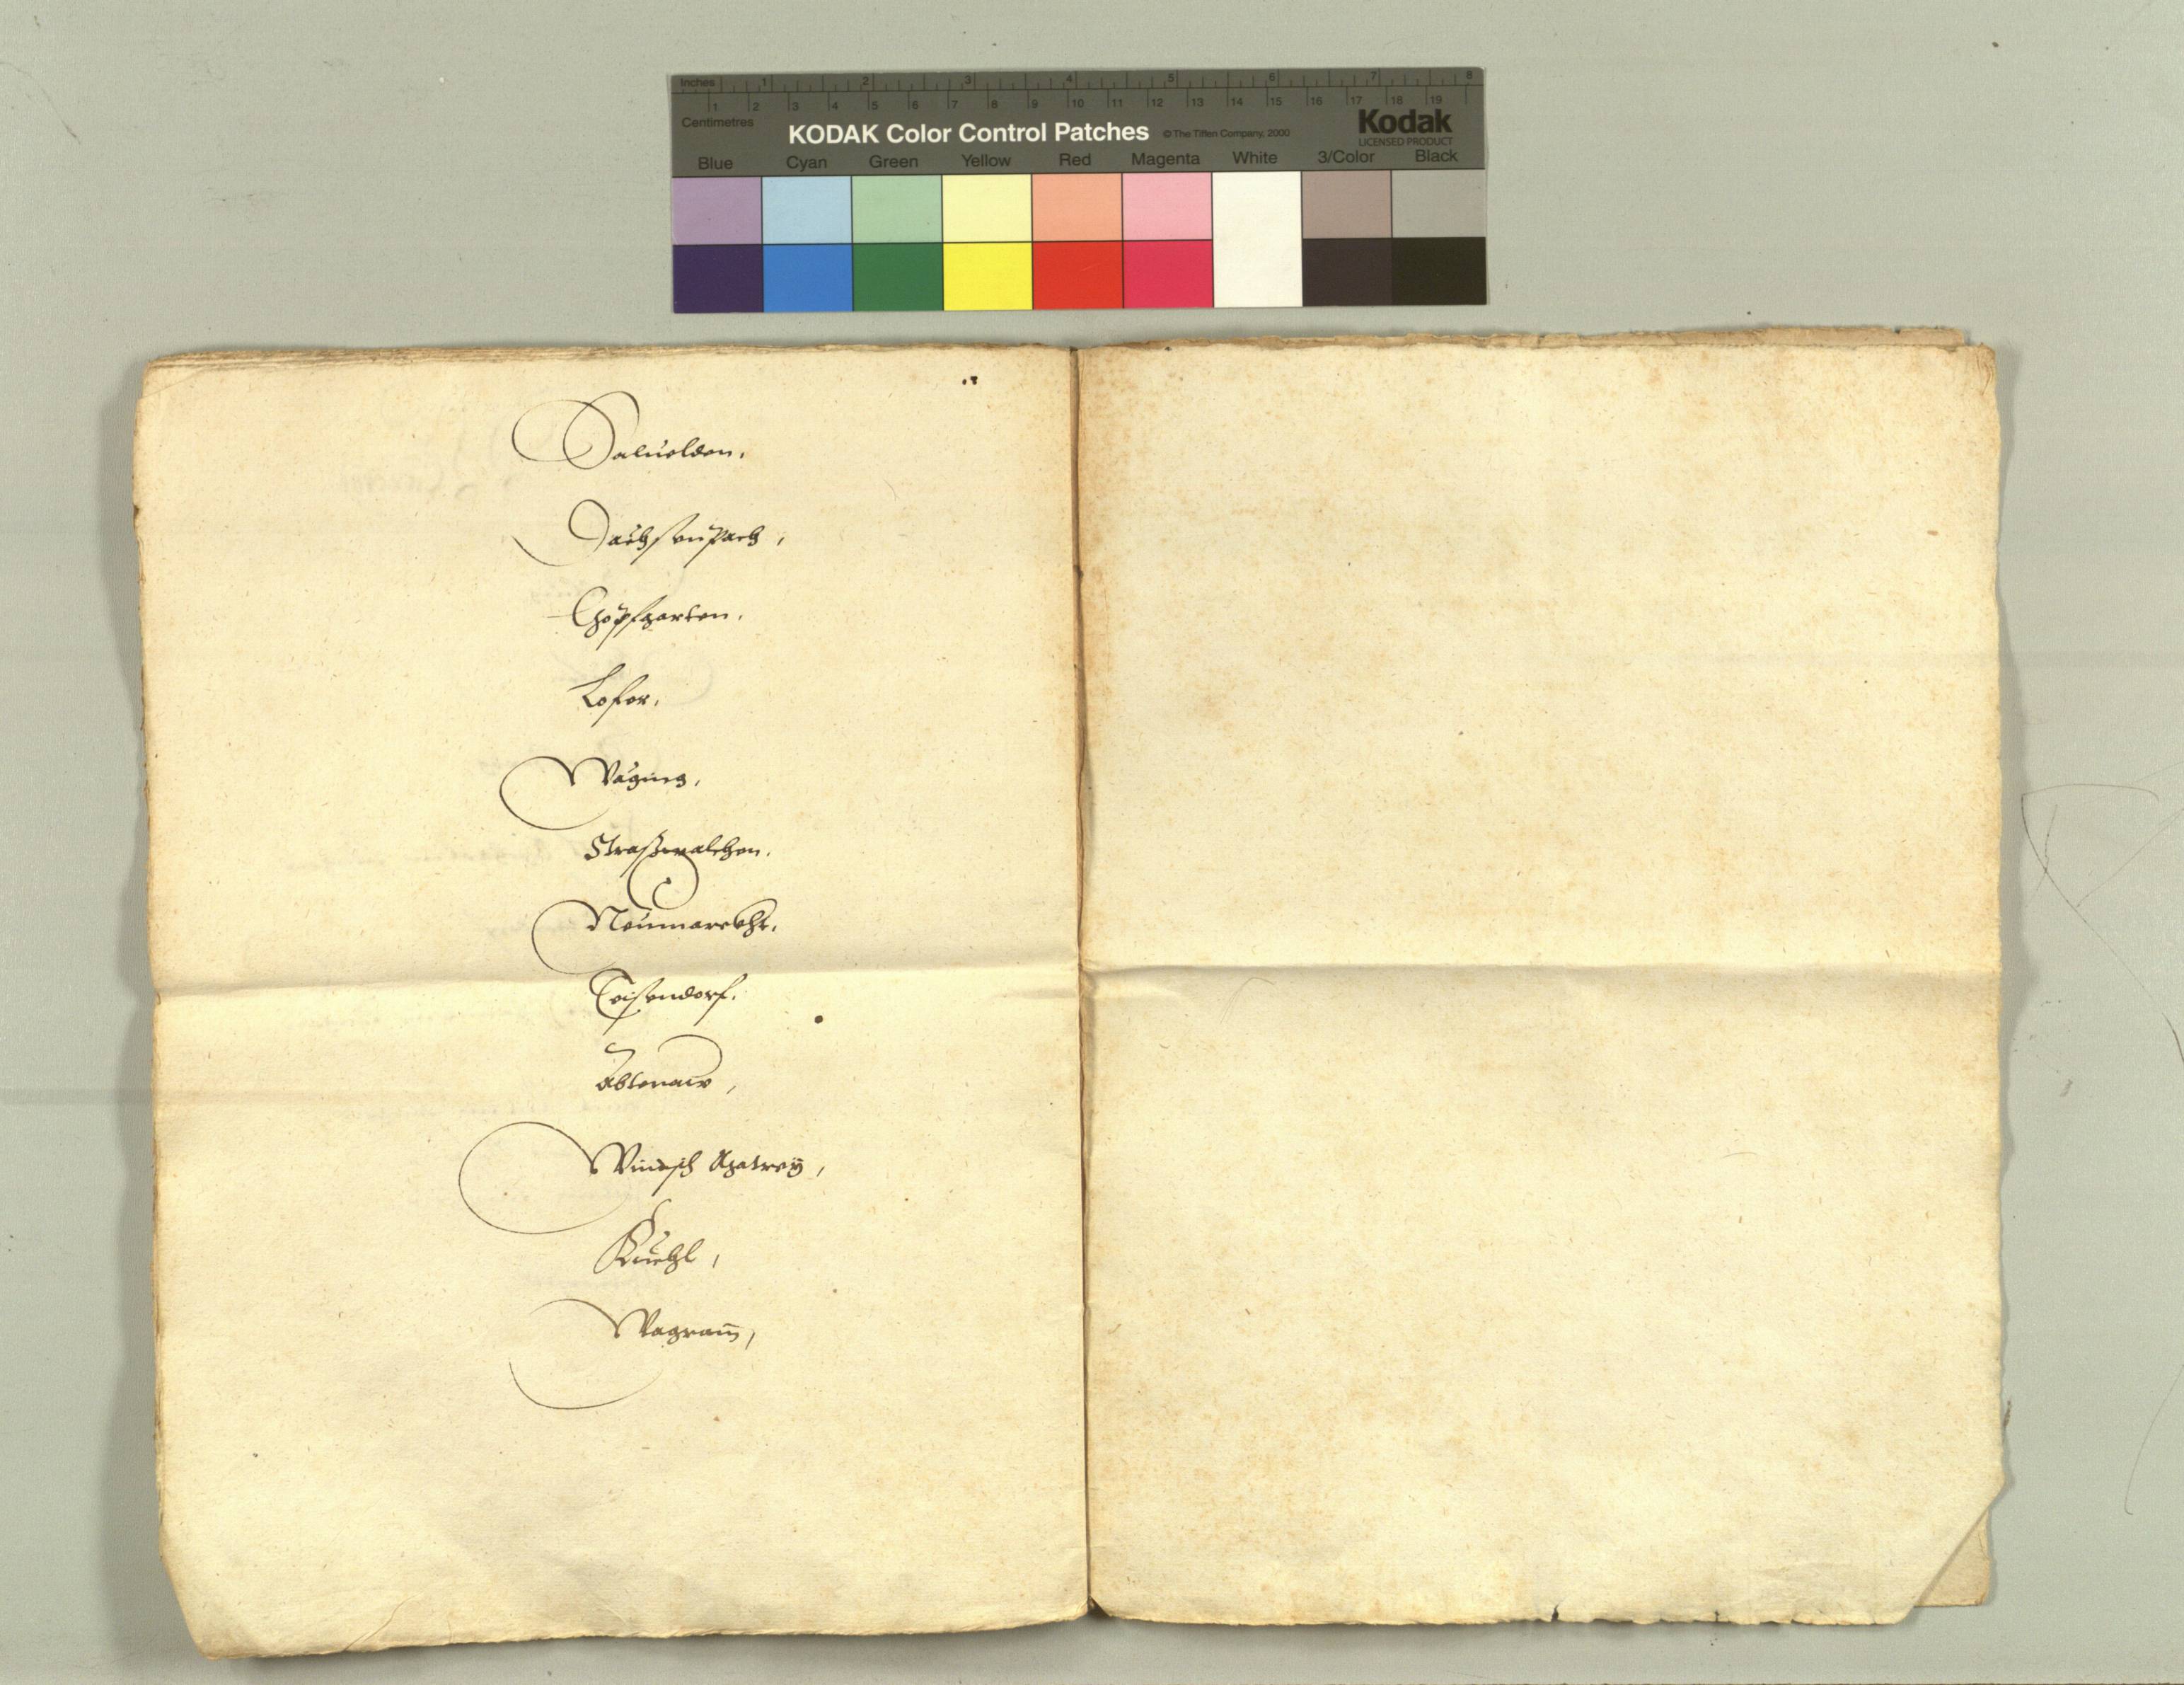 Inches 1 2 3 4 5 6 7 8
1 2 3 4 5 6 7 8 9 10 11 12 13 14 15 16 17 18 19
Centimetres
KODAK Color Control Patches © The Tiffen Company, 2000 Kodak
LICENSED PRODUCT
Blue Cyan Green Yellow Red Magenta White 3/Color Black
Saluelden.
Lofer.
Wáging.
Straßwalchen.
Neumarckht.
Teisendorf.
Abtenaw,
Windisch
Kuchl,
Wagram,